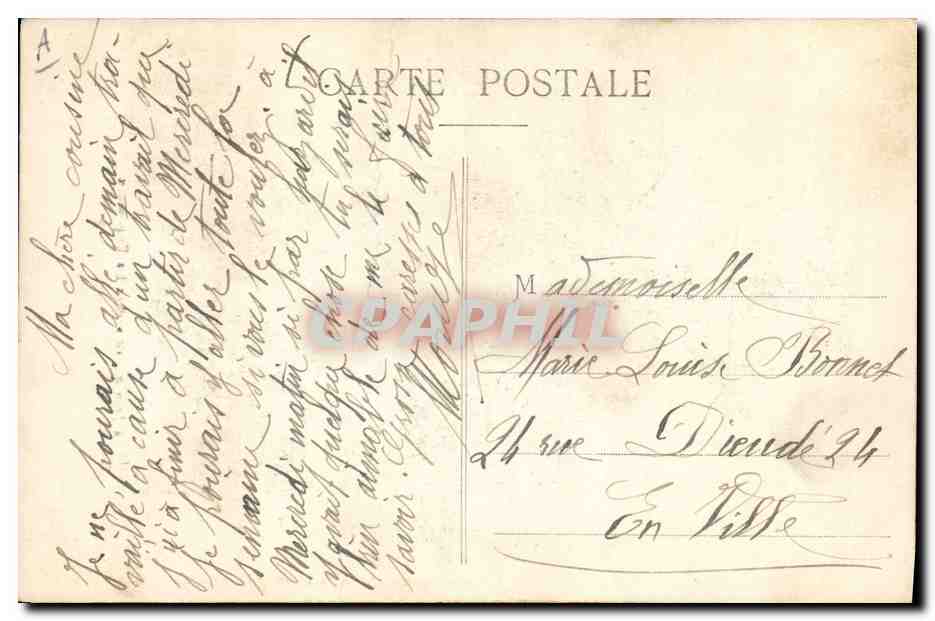 A
CARTE POSTALE
Ma chère cousine
Je ne pourais allé demain tra-
vaille à cause d'un travail que
j'ai à finir à partir de Mercredi
je pourais y aller toute la
semaine si vous le voulez. à
Mercredi matin si par hazard
y avait quelque chose tu serais
bien aimable de me le faire
savoir. Grosse caresses à tous
Mademoiselle
Marie Louise Bonnet
24 rue Dieudé 24
En Ville
CPAPHIL